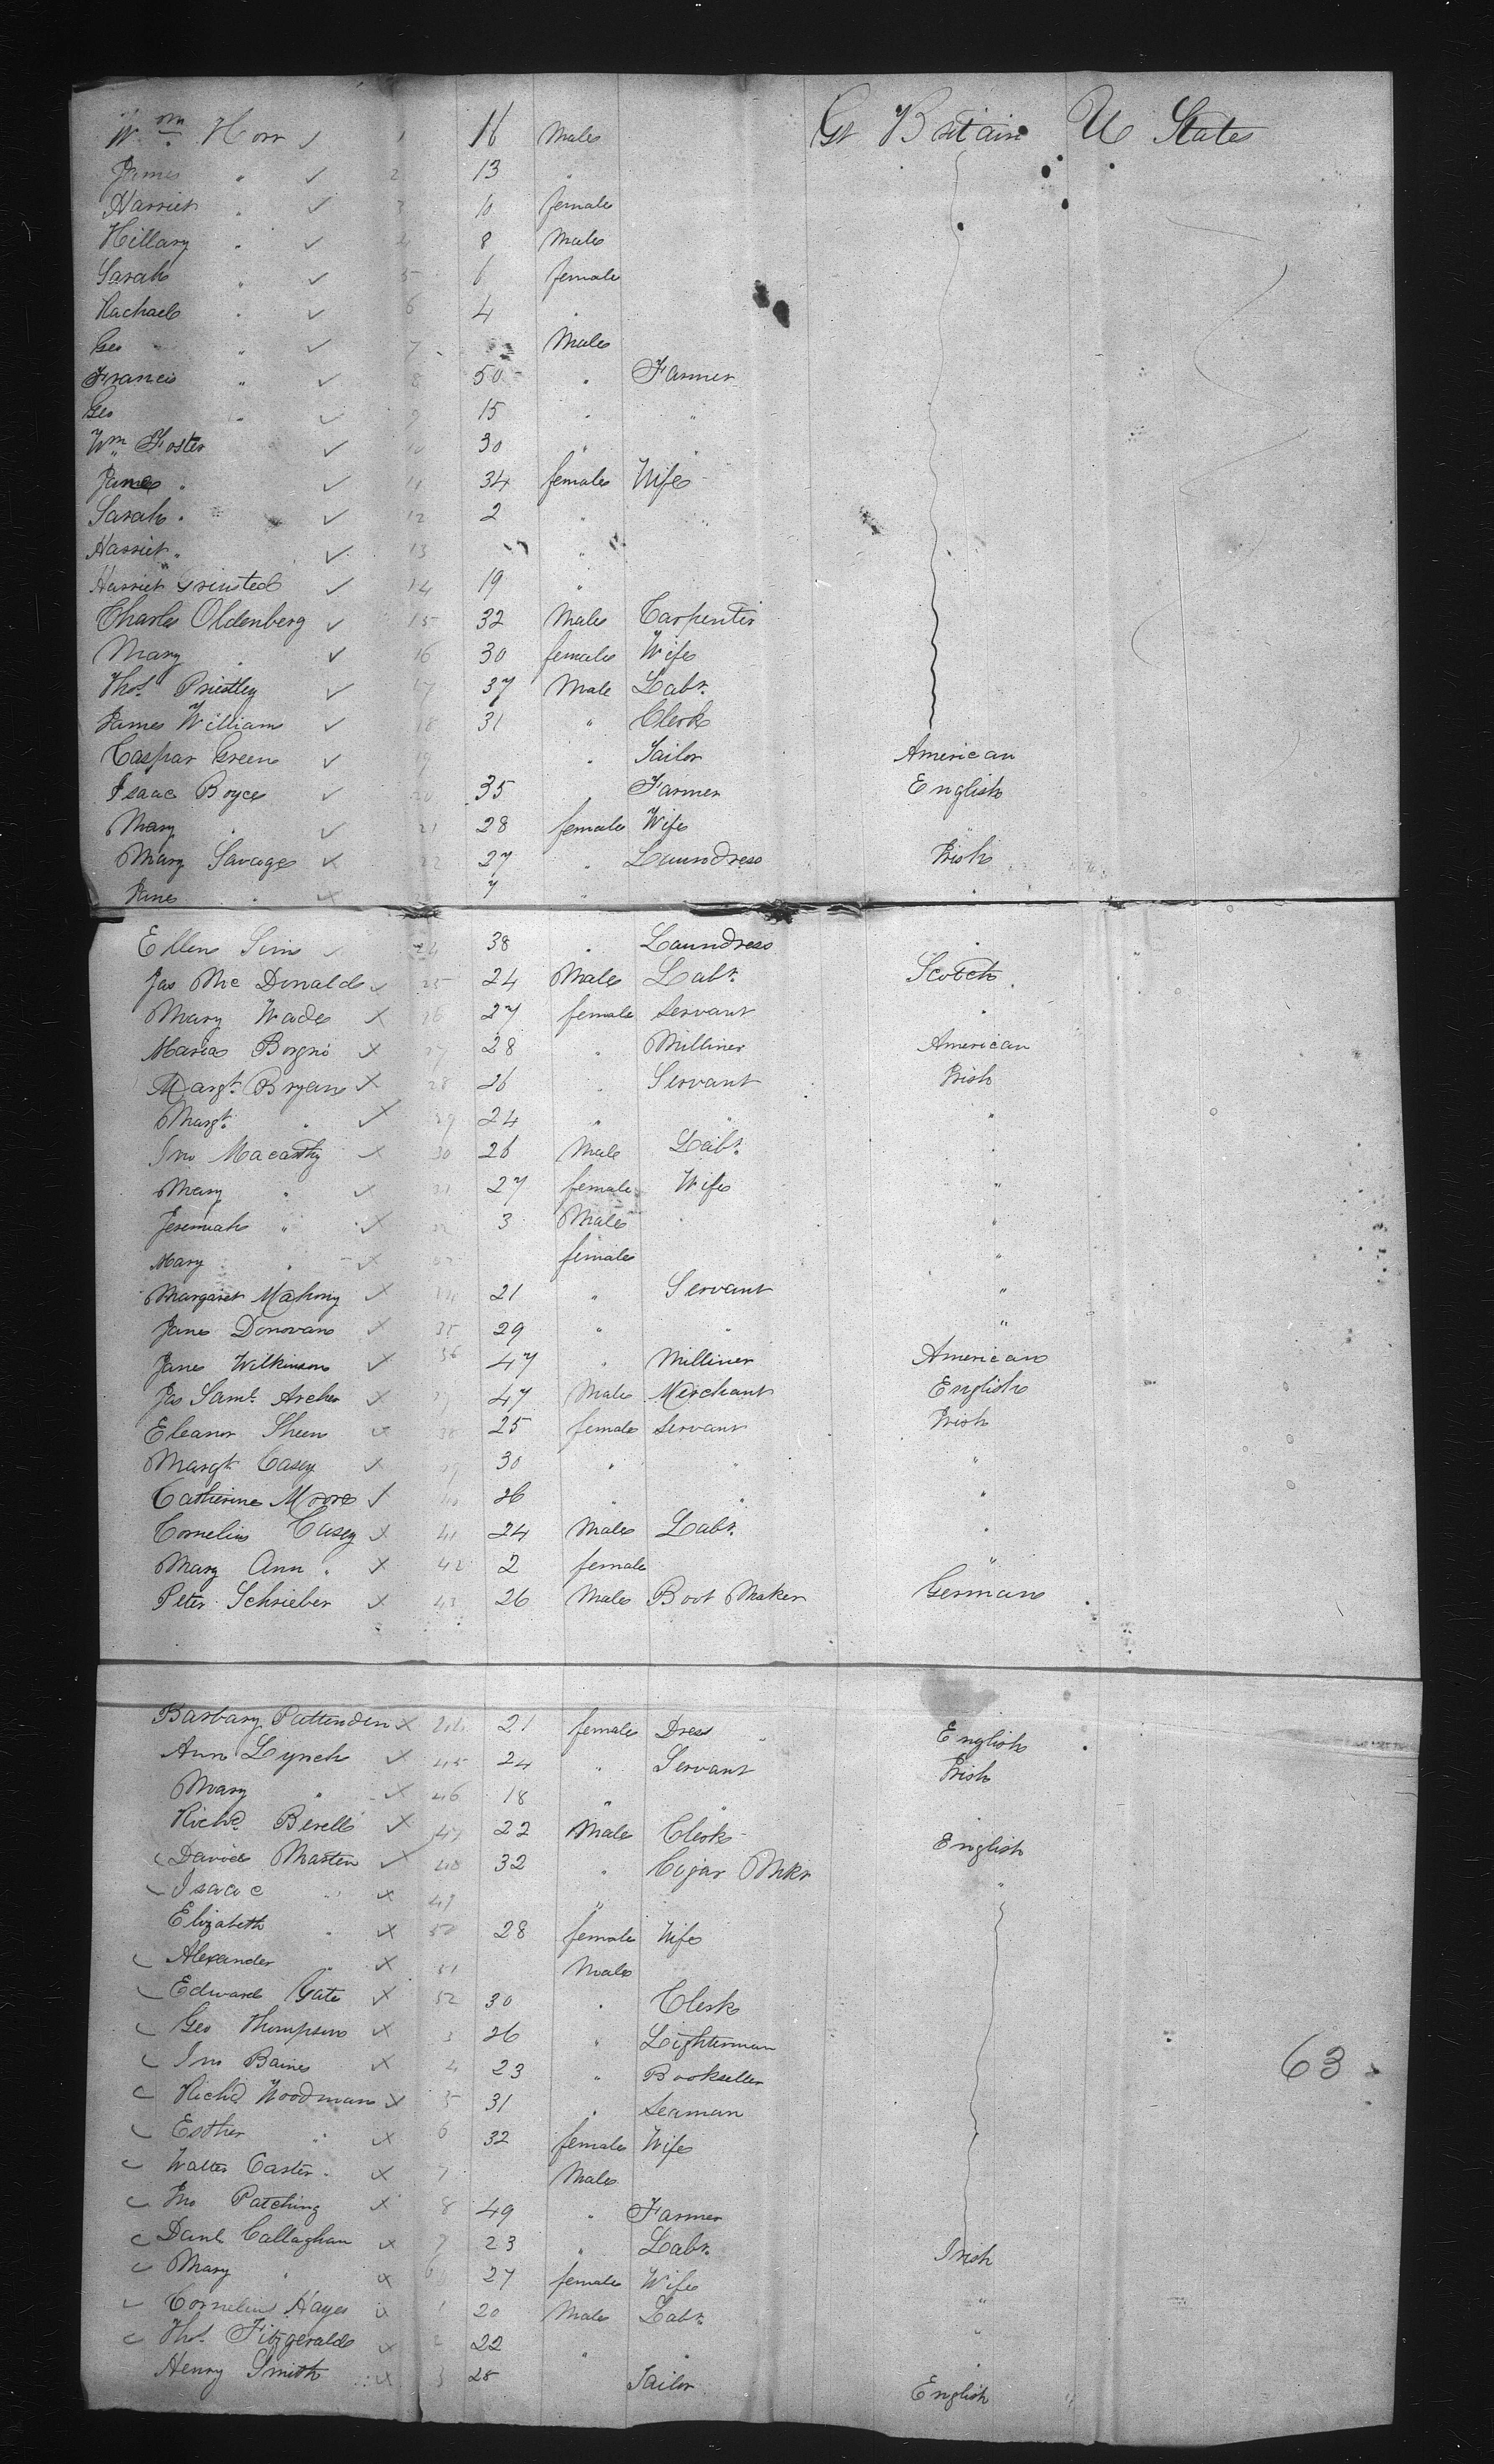 Wm Horr 1 16 Male Gt Britain U States
James " 2 13 "
Harriet " 3 10 female
Hillary " 4 8 Male
Sarah " 5 6 female
Rachael " 6 4 "
Geo " 7 Male
Francis " 8 50 " Farmer
Geo " 9 15 " "
Wm Foster 10 30 " "
Jane " 11 34 female Wife
Sarah " 12 2 " "
Harriet " 13 "
Harriet Grinsted 14 19 "
Charles Oldenberg 15 32 Male Carpenter
Mary " 16 30 female Wife
Thos Priestley 17 37 Male Labr
James William 18 31 " Clerk
Caspar Green 19 " Tailor American
Isaac Boyce 20 35 " Farmer English
Mary " 21 28 female Wife "
Mary Savage 22 27 " Laundress Irish
Jane " 23 7 " "
Ellen Sim 24 38 " Laundress "
Jas Mc Donald 25 24 Male Labr Scotch
Mary Wade 26 27 female Servant "
Maria 27 28 " Milliner American
Margt Bryan 28 26 " Servant Irish
Margt " 29 24 " " "
Jno Macarthy 30 26 Male Labr "
Mary " 31 27 female Wife "
Jeremiah " 32 3 Male "
Mary " 33 female "
Margaret Mahony 34 21 " Servant "
Jane Donovan 35 29 " " "
Jane Wilkinson 36 47 " Milliner American
Jas Saml Archer 37 47 Male Merchant English
Eleanor Sheen 38 25 female Servant Irish
Margt Casey 39 30 " " "
Catherine Moore 40 26 " " "
Cornelius Casey 41 24 Male Labr "
Mary Ann " 42 2 female "
Peter Schrieber 43 26 Male Boot Maker German
Barbary Pattenden 44 21 female Dress " English
Ann Lynch 45 24 " Servant Irish
Mary " 46 18 " " "
Richd Berell 47 22 Male Clerk English
David Marten 48 32 " Cigar Mkr "
Isaac " 49 "
Elizabeth " 50 28 female Wife
Alexander " 51 Male
Edward Gate 52 30 " Clerk
Geo Thompson 3 26 " Lighterman
Jno Baines 4 23 " Bookseller 63
Richd Woodman 5 31 " Seaman
Esther " 6 32 female Wife
Walter Carter 7 Male
Jno Patching 8 49 " Farmer
Danl Callaghan 9 23 " Labr Irish
Mary " 6 27 female Wife
Cornelius Hayes 1 20 Male Labr "
Thos Fitzgerald 2 22 " " "
Henry Smith 3 28 Tailor English